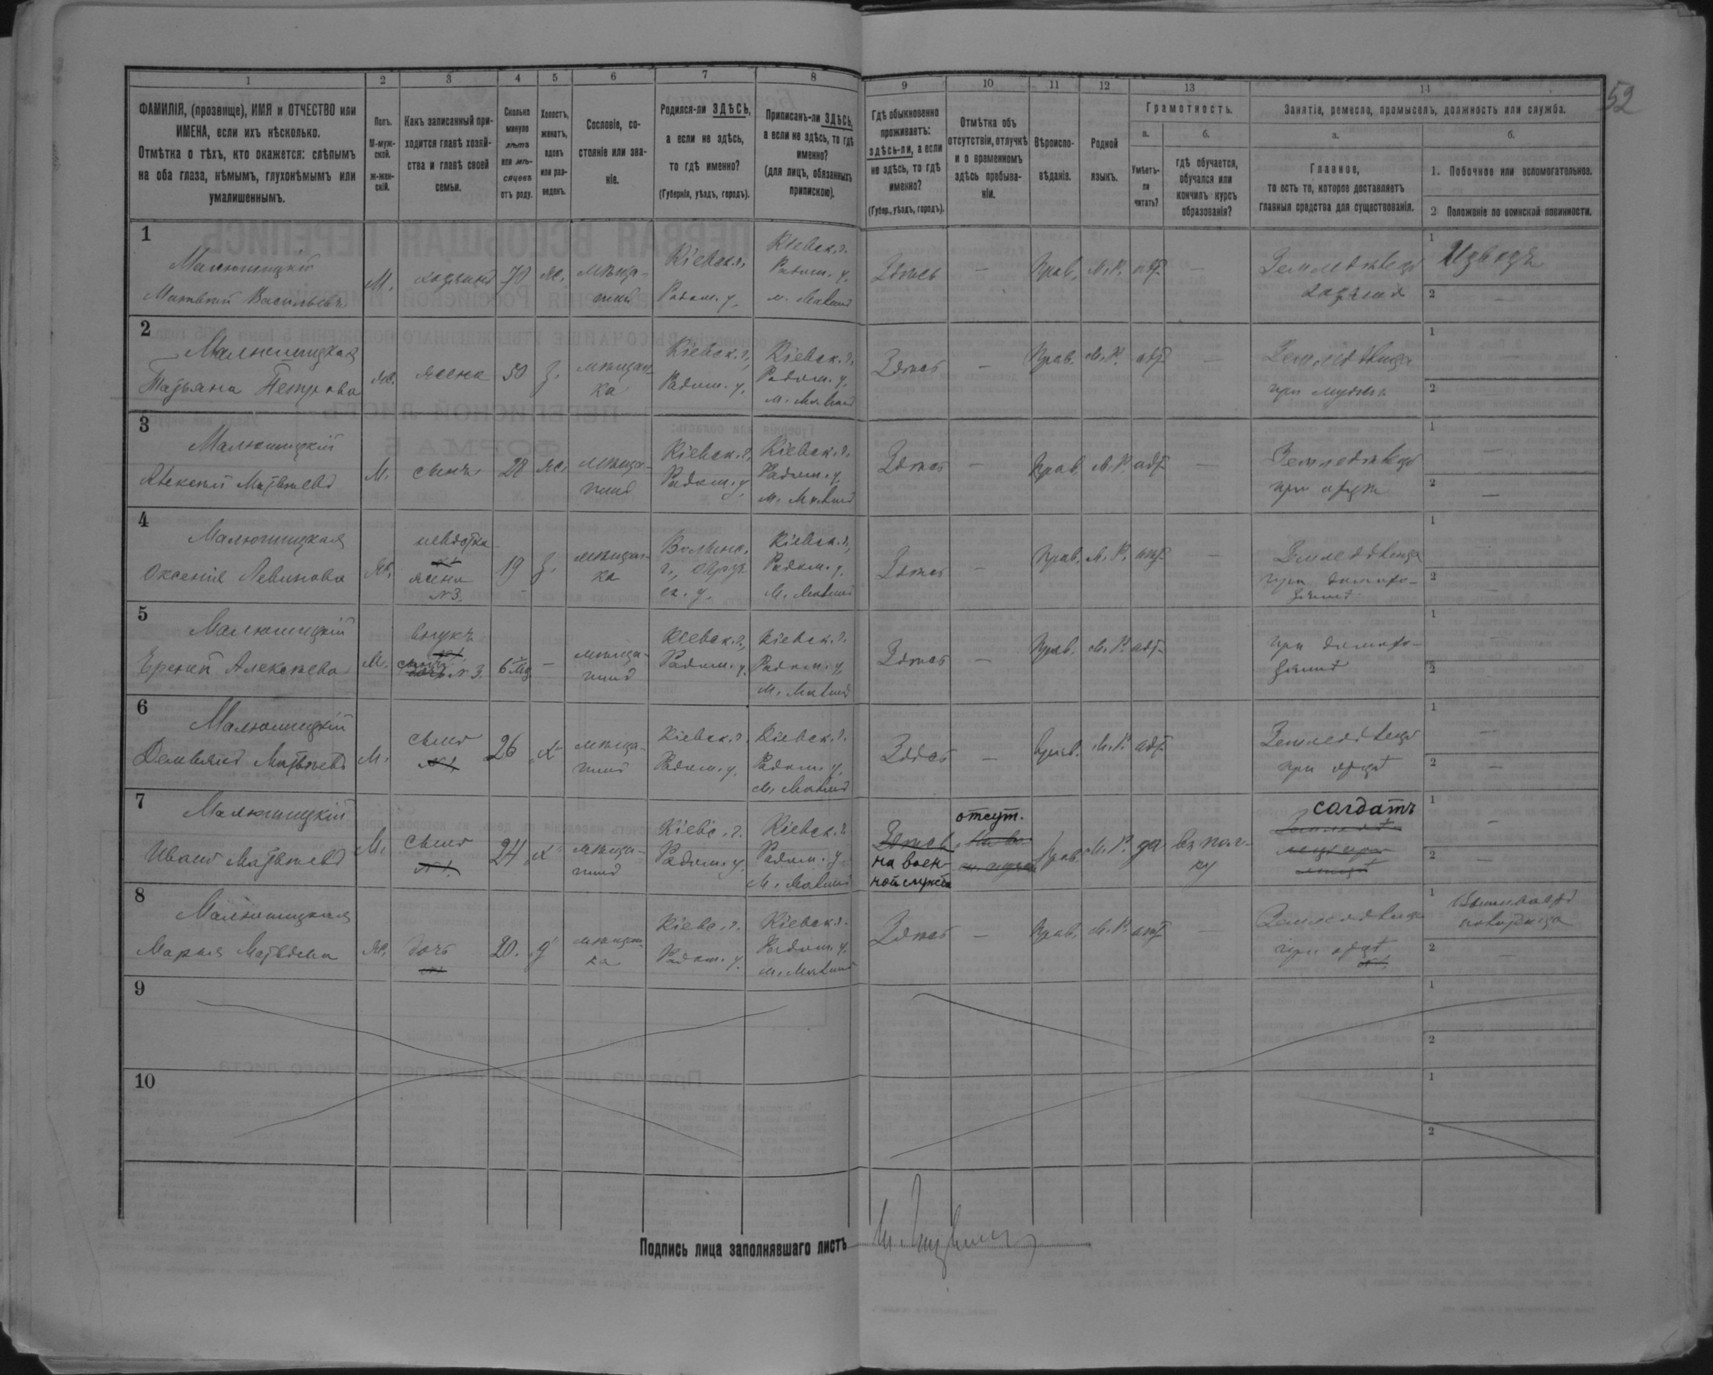 52
1 2 3 4 5 6 7 8 9 10 11 12 13 14
ФАМИЛІЯ, (прозвище), ИМЯ и ОТЧЕСТВО или
ИМЕНА, если ихъ нѣсколько.
Отмѣтка о тѣхъ, кто окажется: слѣпымъ
на оба глаза, нѣмымъ, глухонѣмымъ или
умалишеннымъ.
Полъ.
М-муж-
ской.
ж-жен-
скій.
Какъ записанный при-
ходится главѣ хозяй-
ства и главѣ своей
семьи.
Сколько
минуло
лѣтъ
или мѣ-
сяцевъ
отъ роду.
Холостъ,
женатъ,
вдовъ
или раз-
веденъ.
Сословіе, со-
стояніе или зва-
ніе.
Родился-ли ЗДѢСЬ,
а если не здѣсь,
то гдѣ именно?
(Губернія, уѣздъ, городъ).
Приписанъ-ли ЗДѢСЬ,
а если не здѣсь, то гдѣ
именно?
(для лицъ, обязанныхъ
припискою).
Гдѣ обыкновенно
проживаетъ:
здѣсь-ли, а если
не здѣсь, то гдѣ
именно?
(Губер., уѣздъ, городъ).
Отмѣтка объ
отсутствіи, отлучкѣ
и о временномъ
здѣсь пребыва-
ніи.
Вѣроиспо-
вѣданіе.
Родной
языкъ.
Грамотность.
а.
Умѣетъ-
ли
читать?
б.
гдѣ обучается,
обучался или
кончилъ курсъ
образованія?
Занятіе, ремесло, промыселъ, должность или служба.
а.
Главное,
то есть то, которое доставляетъ
главныя средства для существованія.
б.
1. Побочное или вспомогательное.
2 Положеніе по воинской повинности.
1
Малюшицкій
М. хозяинъ 70 ж. мѣща-
нинъ
Кіевск. г.
Радом. у.
Кіевск. г.
Радом. у.
м. Малинъ
Здѣсь — Прав. М.Р. нѣт —
Земледѣлецъ
хозяинъ
1
2 —
2
Малюшицкая
Татьяна Петрова
ж. жена 50 з. мѣщан-
ка
Кіевск. г.,
Радом. у.
Кіевск. г.
Радом. у.
м. Малинъ
Здѣсь — Прав. М.Р. нѣт —
1
2
3
Малюшицкій
Алексѣй Матвѣевъ
М. сынъ 28 ж. мѣща-
нинъ
Кіевск. г.
Радом. у.
Кіевск. г.
Радом. у.
м. Малинъ
Здѣсь Прав. М.Р. нѣт —
Земледѣлецъ
при отцѣ
1 —
2 —
4
Малюшицкая
Оксенія Левинова
ж. невѣстка
жена
№ 3.
19 з. мѣщан-
ка
Волынс.
г., Овруч
ск. у.
Кіевск. г.
Радом. у.
м. Малинъ
Здѣсь — Прав. М.Р. нѣт —
1 —
2 —
5
Малюшицкій
Алексѣевъ
М. внукъ
сынъ № 3.
6 мц — мѣща-
нинъ
Кіевск. г.
Радом. у.
Кіевск. г.
Радом. у.
м. Малинъ
Здѣсь — Прав. М.Р. нѣт
1 —
2
6
Малюшицкій
Демьянъ Матвѣевъ
М. сынъ
№ 1
26 х мѣща-
нинъ
Кіевск. г.
Радом. у.
Кіевск. г.
Радом. у.
м. Малинъ
Здѣсь — Прав. М.Р. нѣт
Земледѣлецъ
при отцѣ
1 —
2 —
7
Малюшицкій
Иванъ Матвѣевъ
М. сынъ
№ 1.
24 х мѣща-
нинъ
Кіевс. г.
Радом. у.
Кіевск. г.
Радом. у.
м. Малинъ
Здѣсь
на воен-
ной службѣ
отсут.
Прав. М.Р. да въ пол-
ку
солдатъ
1 —
2 —
8
Малюшицкая
Марья Матвѣева
ж. дочь
№ 1
20. д мѣщан-
ка
Кіевс. г.
Радом. у.
Кіевск. г.
Радом. у.
м. Малинъ
Здѣсь — Прав. М.Р. нѣт —
при отцѣ
1
2 —
9
1
2
10
1
2
Подпись лица заполнявшаго листъ